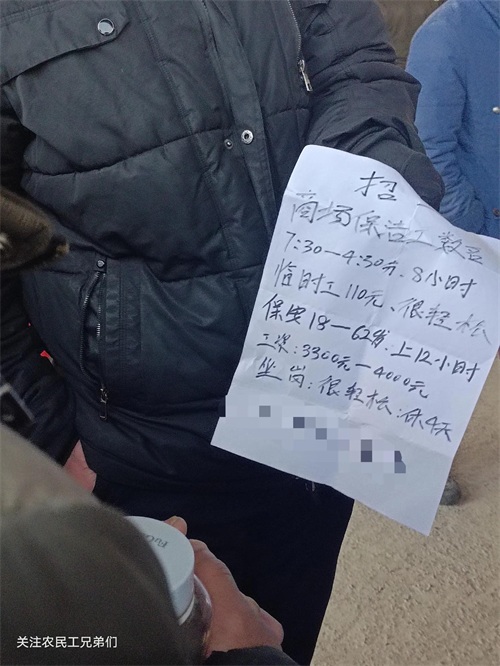 招
商场保洁工数名
7:30—4:30分、8小时
临时工110元、很轻松
保安18—62岁、上12小时
工资:3300元—4000元
坐岗:很轻松:休4天
关注农民工兄弟们